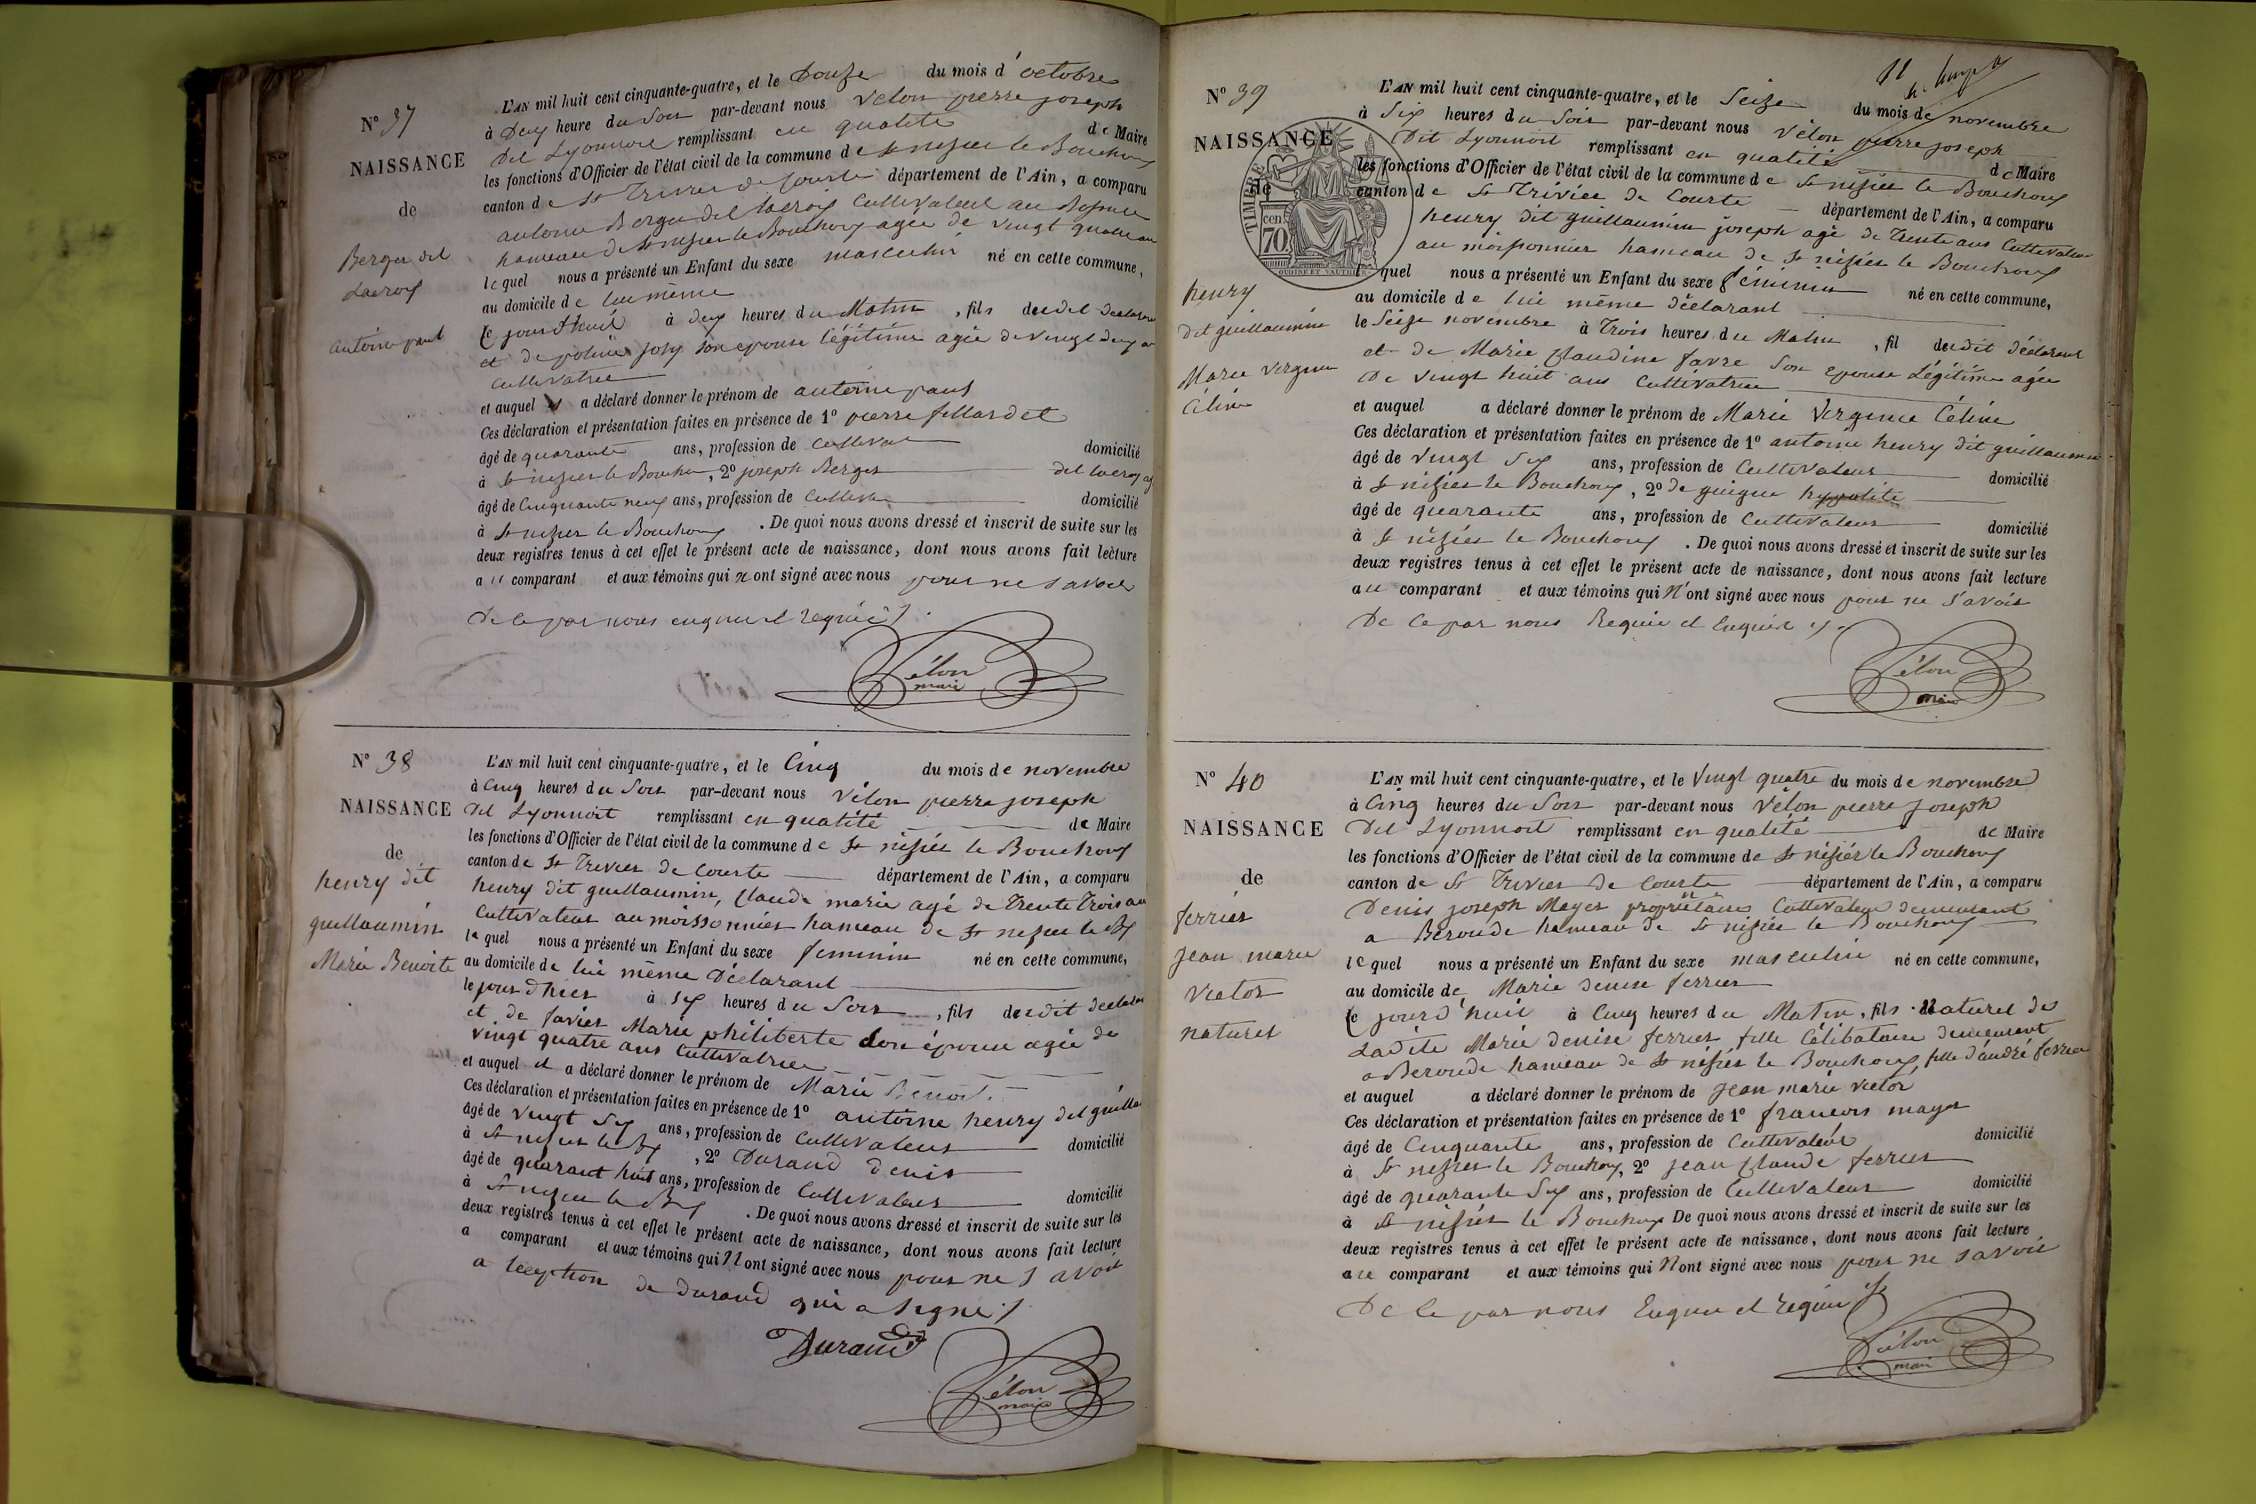 N° 37
NAISSANCE
de
Berger dit
Lacroix
antoine paul
L'AN mil huit cent cinquante-quatre, et le Douze du mois d'octobre
à Deux heure du Soir par-devant nous Vélon pierre joseph
Dit Lyonnoit remplissant en qualité de Maire
les fonctions d'Officier de l'état civil de la commune de St nizier le Bouchoux
canton de St Trivier de Courte département de l'Ain, a comparu
antoine Berger dit Lacroix Cultivateur au
hameau de St nizier le Bouchoux agée de vingt quatre an
lequel nous a présenté un Enfant du sexe masculin né en cette commune,
au domicile de lui même
le jourd'huit à deux heures du Matin, fils dudit Declarant
et de joly son epouse légitime agée de vingt deux an
Cultivatrice
et auquel il a déclaré donner le prénom de antoine paul
Ces déclaration et présentation faites en présence de 1° pierre fillardet
âgé de quarante ans, profession de Cultivat domicilié
à St nizier le Bouchou, 2° joseph Berger dit Lacroix
âgé de Cinquante neuf ans, profession de Cultivat domicilié
à St nizier le Bouchoux. De quoi nous avons dressé et inscrit de suite sur les
deux registres tenus à cet effet le présent acte de naissance, dont nous avons fait lecture
au comparant et aux témoins qui n ont signé avec nous pour ne savoir
De ce par nous enquis et requis /.
Vélon
maire
N° 38
NAISSANCE
de
henry dit
guillaumin
Marie Benoite
L'AN mil huit cent cinquante-quatre, et le Cinq du mois de novembre
à Cinq heures du Soir par-devant nous Vélon pierre joseph
Dit Lyonnoit remplissant en qualité de Maire
les fonctions d'Officier de l'état civil de la commune de St nizier le Bouchoux
canton de St Trivier de Courte département de l'Ain, a comparu
henry dit guillaumin, Claude marie agé de Trente Trois an
Cultivateur au moissonnier hameau de St nizier le Bx
lequel nous a présenté un Enfant du sexe feminin né en cette commune,
au domicile de lui même Déclarant
le jour d'hier à six heures du Soir, fils dudit declarant
et de favier Marie philiberte son épouse agée de
vingt quatre ans Cultivatrice
et auquel il a déclaré donner le prénom de Marie Benoit
Ces déclaration et présentation faites en présence de 1° antoine henry dit guilla
âgé de vingt six ans, profession de Cultivateur domicilié
à St nizier le Bx, 2° Durand denis
âgé de quarant huit ans, profession de Cultivateur domicilié
à St nizier le Bx. De quoi nous avons dressé et inscrit de suite sur les
deux registres tenus à cet effet le présent acte de naissance, dont nous avons fait lecture
a comparant et aux témoins qui n ont signé avec nous pour ne savoir
a leception de durand qui a signé /.
Durand
Vélon
maire
11
N° 39
NAISSANCE
de
henry
dit guillaumin
Marie Vergine
Céline
TIMBRE
70 cen
L'AN mil huit cent cinquante-quatre, et le Seize du mois de novembre
à Six heures du Soir par-devant nous Vélon pierre joseph
Dit Lyonnoit remplissant en qualité de Maire
les fonctions d'Officier de l'état civil de la commune de St nizier le Bouchoux
canton de St Trivier de Courte département de l'Ain, a comparu
henry dit guillaumin joseph agé de Trente ans Cultivateur
au moissonnier hameau de St nizier le Bouchoux
quel nous a présenté un Enfant du sexe féminin né en cette commune,
au domicile de lui même déclarant
le Seize novembre à Trois heures du Matin, fil dudit déclarant
et de Marie Claudine favre Son epouse Légitime agée
De vingt huit ans Cultivatrice
et auquel a déclaré donner le prénom de Marie Vergine Céline
Ces déclaration et présentation faites en présence de 1° antoine henry dit guillaumin
âgé de vingt six ans, profession de Cultivateur domicilié
à St nizier le Bouchoux, 2° de guigue hyppolite
âgé de quarante ans, profession de Cultivateur domicilié
à St nizier le Bouchoux. De quoi nous avons dressé et inscrit de suite sur les
deux registres tenus à cet effet le présent acte de naissance, dont nous avons fait lecture
au comparant et aux témoins qui N'ont signé avec nous pour ne s'avoir
De ce par nous Requis et Enquis /.
Vélon
maire
N° 40
NAISSANCE
de
ferrier
jean marie
victor
naturel
L'AN mil huit cent cinquante-quatre, et le Vingt quatre du mois de novembre
à Cinq heures du Soir par-devant nous Vélon pierre joseph
Dit Lyonnoit remplissant en qualité de Maire
les fonctions d'Officier de l'état civil de la commune de St nizier le Bouchoux
canton de St Trivier de Courte département de l'Ain, a comparu
Denis joseph Mayer propriétaire Cultivateur demeurant
a Béroude hameau de St nizier le Bouchoux
lequel nous a présenté un Enfant du sexe masculin né en cette commune,
au domicile de Marie denise ferrier
le jourd'huit à Cinq heures du Matin, fils naturel de
Ladite Marie denise ferrier fille Célibataire demeurant
a Beroude hameau de St nizier le Bouchoux, fille d'andré ferrier
et auquel a déclaré donner le prénom de jean marie victor
Ces déclaration et présentation faites en présence de 1° francois mayer
âgé de Cinquante ans, profession de Cultivateur domicilié
à St nizier le Bouchoux, 2° jean Claude ferrier
âgé de quarante Six ans, profession de Cultivateur domicilié
à St nizier le Bouchoux De quoi nous avons dressé et inscrit de suite sur les
deux registres tenus à cet effet le présent acte de naissance, dont nous avons fait lecture
au comparant et aux témoins qui N ont signé avec nous pour ne savoir
De ce par nous Enquis et requis /.
Vélon
maire